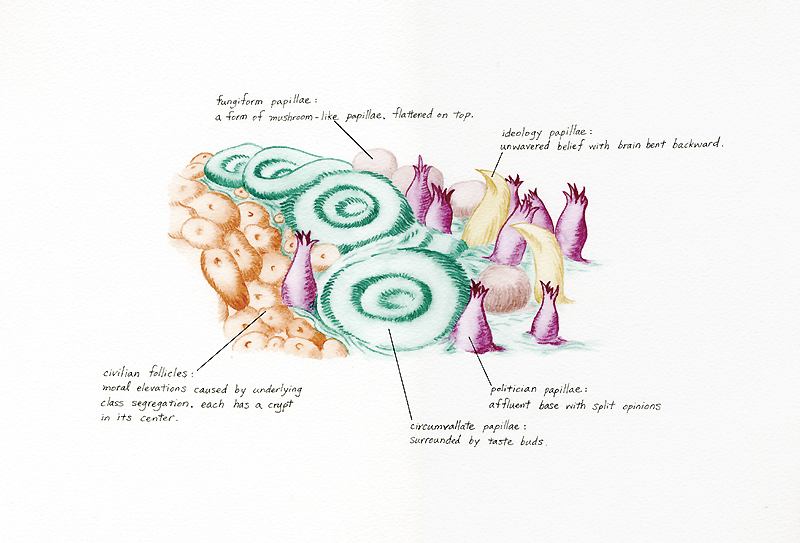 fungiform papillae:
a form of mushroom-like papillae, flattened on top.
ideology papillae:
unwavered belief with brain bent backward.
civilian follicles:
moral elevations caused by underlying
class segregation, each has a crypt
in its center.
politician papillae:
affluent base with split opinions
circumvallate papillae:
surrounded by taste buds.